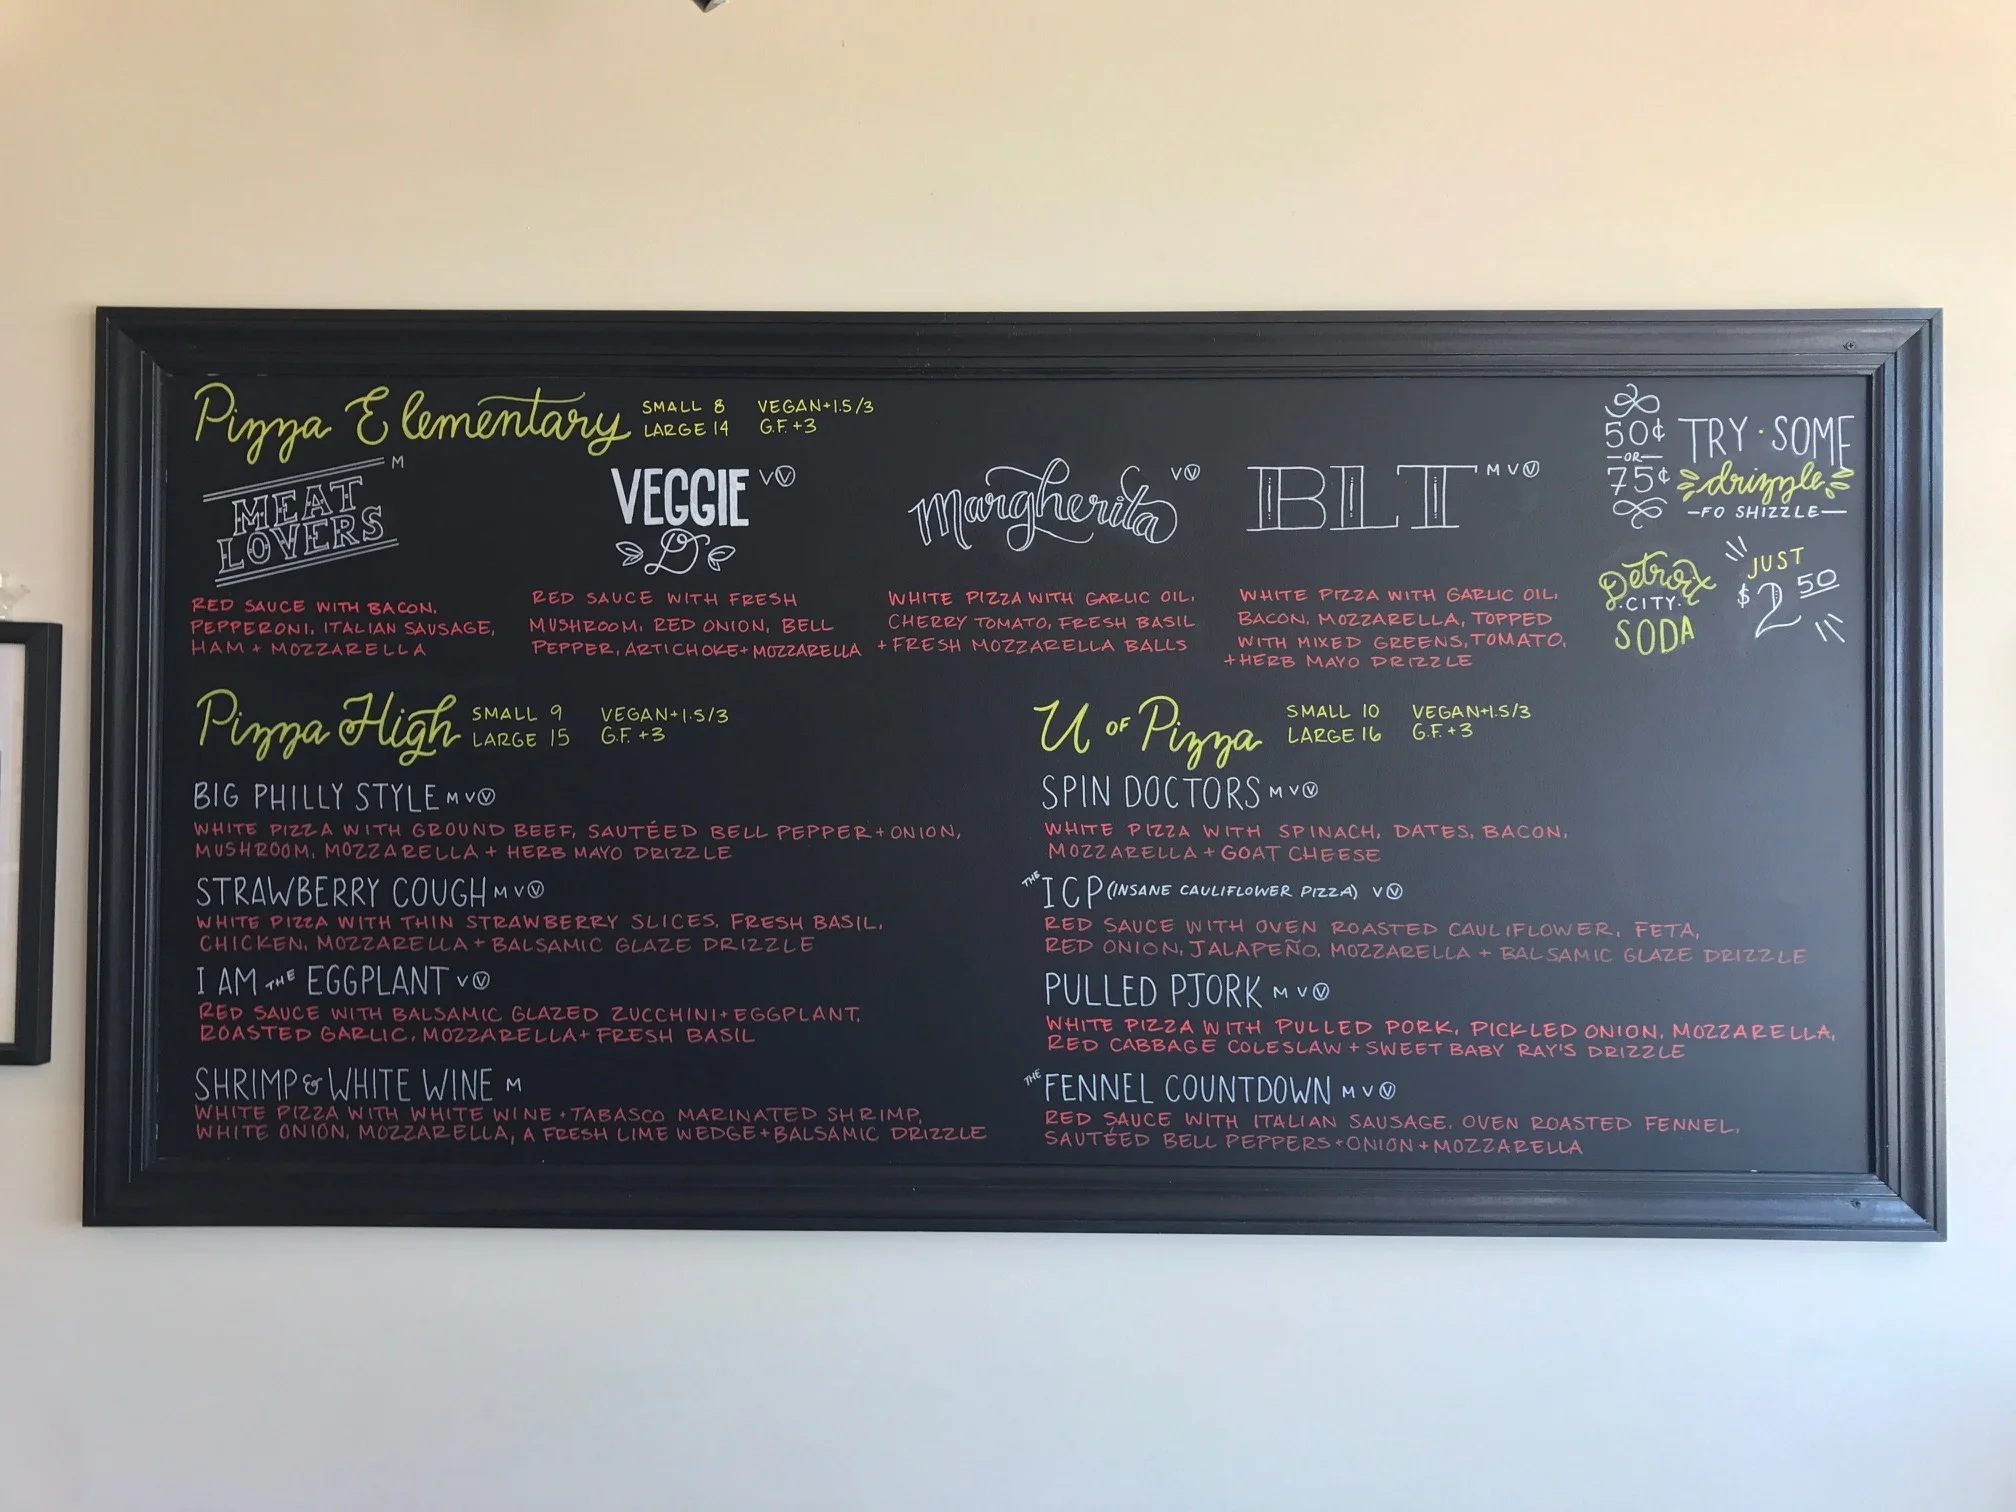 Pizza Elementary
SMALL 8 VEGAN+1.5/3
LARGE 14 G.F. +3
MEAT LOVERS M
RED SAUCE WITH BACON,
PEPPERONI, ITALIAN SAUSAGE,
HAM + MOZZARELLA
VEGGIE V Ⓥ
RED SAUCE WITH FRESH
MUSHROOM, RED ONION, BELL
PEPPER, ARTICHOKE + MOZZARELLA
Margherita V Ⓥ
WHITE PIZZA WITH GARLIC OIL,
CHERRY TOMATO, FRESH BASIL
+ FRESH MOZZARELLA BALLS
BLT M V Ⓥ
WHITE PIZZA WITH GARLIC OIL,
BACON, MOZZARELLA, TOPPED
WITH MIXED GREENS, TOMATO,
+ HERB MAYO DRIZZLE
50¢
-OR-
75¢
TRY · SOME
drizzle
-FO SHIZZLE-
Detroit
·CITY·
SODA
JUST
$2 50
Pizza High
SMALL 9 VEGAN+1.5/3
LARGE 15 G.F. +3
BIG PHILLY STYLE M V Ⓥ
WHITE PIZZA WITH GROUND BEEF, SAUTÉED BELL PEPPER + ONION,
MUSHROOM, MOZZARELLA + HERB MAYO DRIZZLE
STRAWBERRY COUGH M V Ⓥ
WHITE PIZZA WITH THIN STRAWBERRY SLICES, FRESH BASIL,
CHICKEN, MOZZARELLA + BALSAMIC GLAZE DRIZZLE
I AM THE EGGPLANT V Ⓥ
RED SAUCE WITH BALSAMIC GLAZED ZUCCHINI + EGGPLANT,
ROASTED GARLIC, MOZZARELLA + FRESH BASIL
SHRIMP & WHITE WINE M
WHITE PIZZA WITH WHITE WINE + TABASCO MARINATED SHRIMP,
WHITE ONION, MOZZARELLA, A FRESH LIME WEDGE + BALSAMIC DRIZZLE
U OF Pizza
SMALL 10 VEGAN+1.5/3
LARGE 16 G.F. +3
SPIN DOCTORS M V Ⓥ
WHITE PIZZA WITH SPINACH, DATES, BACON,
MOZZARELLA + GOAT CHEESE
THE ICP (INSANE CAULIFLOWER PIZZA) V Ⓥ
RED SAUCE WITH OVEN ROASTED CAULIFLOWER, FETA,
RED ONION, JALAPEÑO, MOZZARELLA + BALSAMIC GLAZE DRIZZLE
PULLED PJORK M V Ⓥ
WHITE PIZZA WITH PULLED PORK, PICKLED ONION, MOZZARELLA,
RED CABBAGE COLESLAW + SWEET BABY RAY'S DRIZZLE
THE FENNEL COUNTDOWN M V Ⓥ
RED SAUCE WITH ITALIAN SAUSAGE, OVEN ROASTED FENNEL,
SAUTÉED BELL PEPPERS + ONION + MOZZARELLA